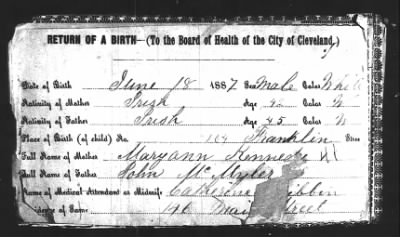 RETURN OF A BIRTH—(To the Board of Health of the City of Cleveland.)
Date of Birth June 18 1887 Sex Male Color White
Nativity of Mother Irish Age 42 Color W
Nativity of Father Irish Age 45 Color W
Place of Birth (of child) No. 169 Franklin Street
Full Name of Mother Maryann Kennedy
Full Name of Father John McMyler
Name of Medical Attendant or Midwife Catherine Gibben
Residence of Same 140 Main Street